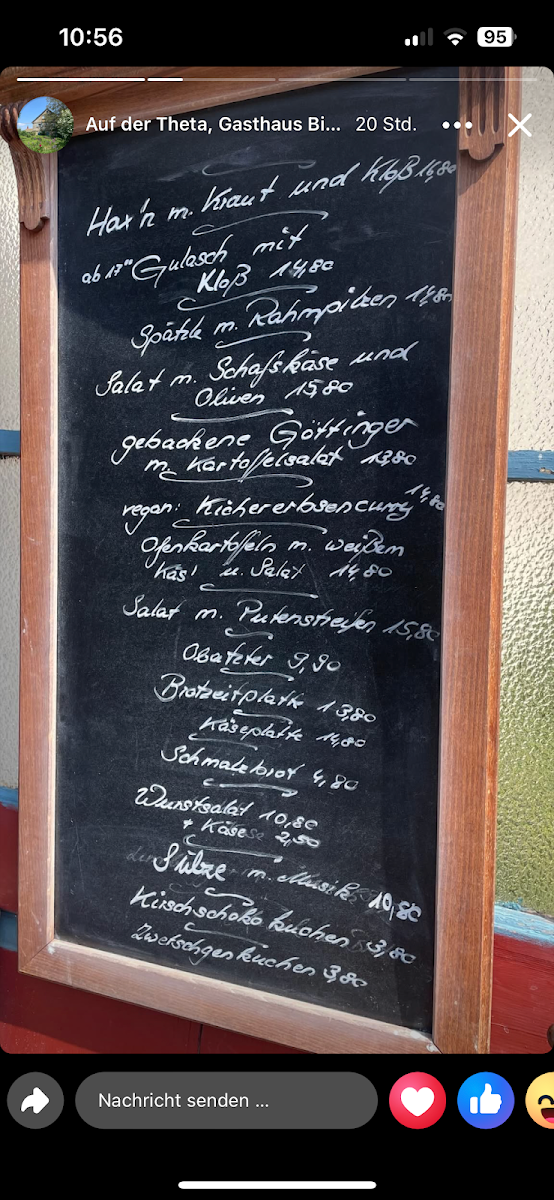 10:56
95
Auf der Theta, Gasthaus Bi... 20 Std.
Hax'n m. Kraut und Kloß 16,80
ab 17°° Gulasch mit
Kloß 14,80
Spätzle m. Rahmpilzen 14,80
Salat m. Schafskäse und
Oliven 15,80
gebackene Göttinger
m. Kartoffelsalat 13,80
vegan: Kichererbsencurry 14,80
Ofenkartoffeln m. weißem
Käs' u. Salat 14,80
Salat m. Putenstreifen 15,80
Obatzter 9,90
Brotzeitplatte 13,80
Käseplatte 14,80
Schmalzbrot 4,80
Wurstsalat 10,80
+ Käse 2,50
Sülze m. Musik 10,80
Kirschschokokuchen 3,80
Zwetschgenkuchen 3,80
Nachricht senden ...